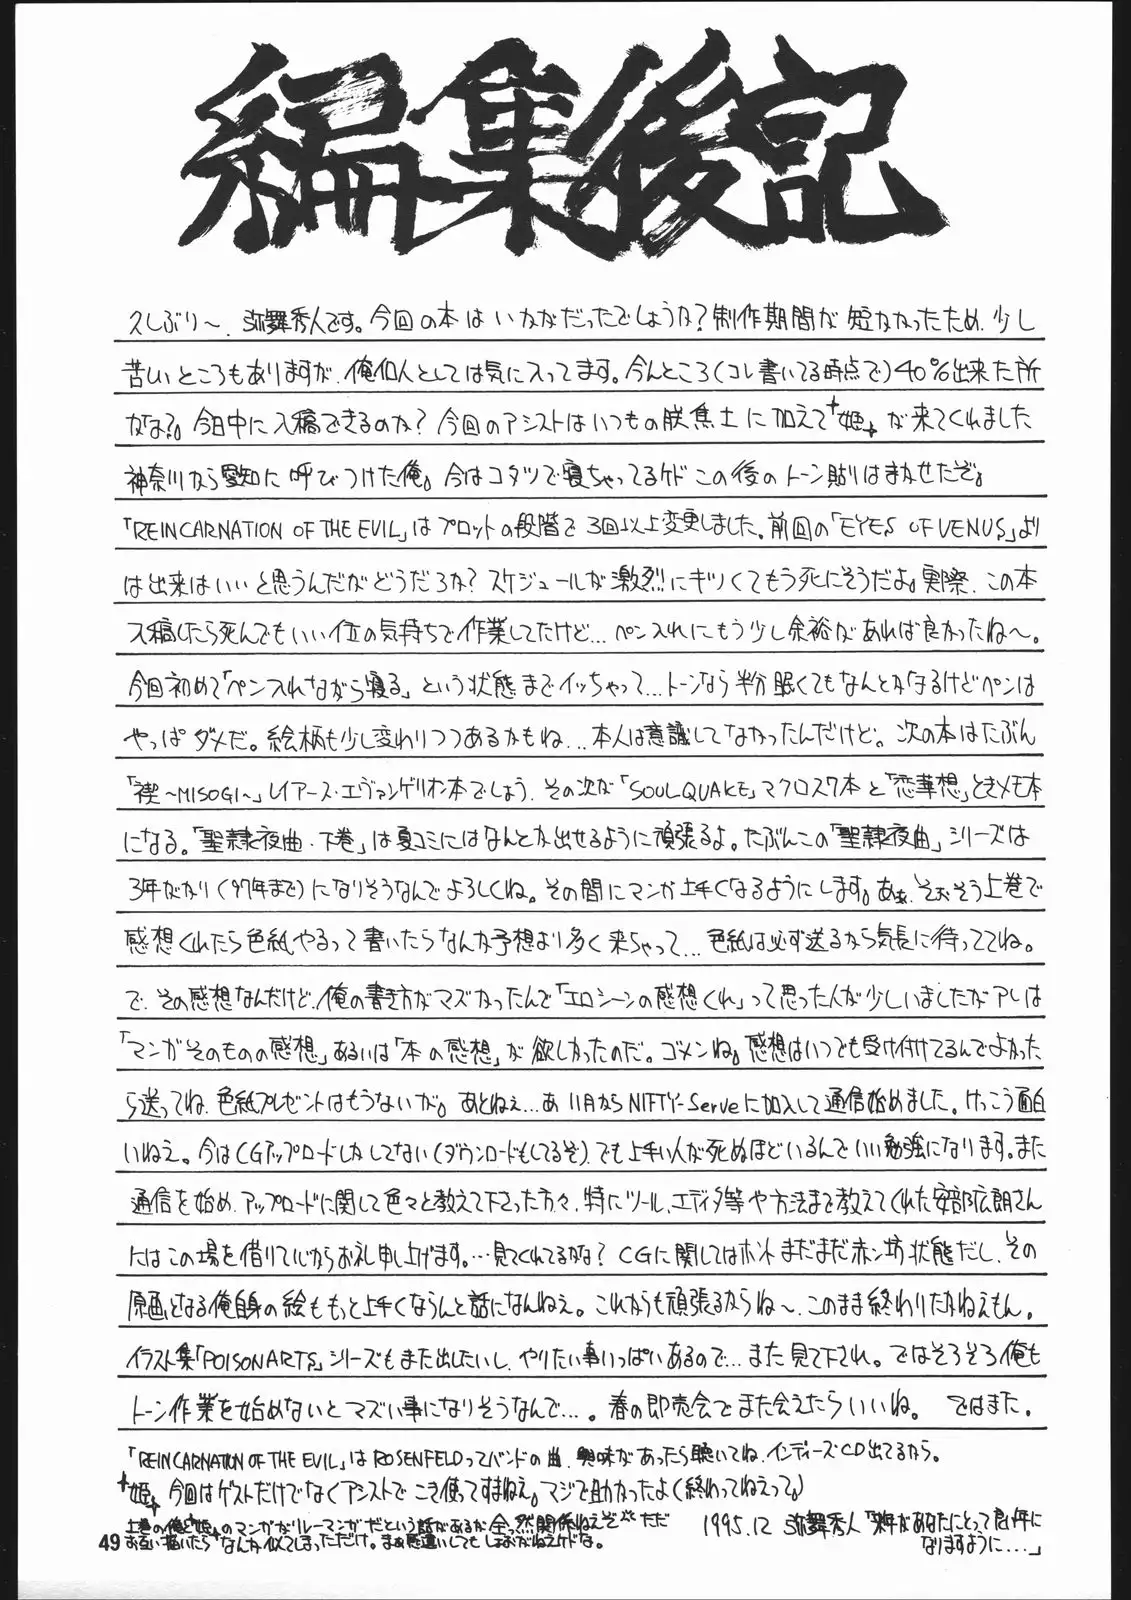 編集後記
久しぶり〜、弥舞秀人です。今回の本はいかがだったでしょうか?制作期間が短かかったため、少し
苦しいところもありますが、俺個人としては気に入ってます。今んところ(コレ書いてる時点で)40%出来た所
かな?。今日中に入稿できるのか?今回のアシストはいつもの朕焦土に加えて姫が来てくれました
神奈川から愛知に呼びつけた俺。今はコタツで寝ちゃってるケドこの後のトーン貼りはまかせたぞ。
「REINCARNATION OF THE EVIL」はプロットの段階で3回以上変更しました。前回の「EYES OF VENUS」より
は出来はいいと思うんだがどうだろな?スケジュールが激烈にキツくてもう死にそうだよ。実際、この本
入稿したら死んでもいい位の気持ちで作業してたけど…ペン入れにもう少し余裕があれば良かったね〜。
今回初めて「ペン入れながら寝る」という状態までイッちゃって…トーンなら半分眠くてもなんとかなるけどペンは
やっぱダメだ。絵柄も少し変わりつつあるかもね…本人は意識してなかったんだけど。次の本はたぶん
「禊〜MISOGI〜」レイアース・エヴァンゲリオン本でしょう、その次が「SOUL QUAKE」マクロス7本と「恋華想」ときメモ本
になる。「聖隷夜曲・下巻」は夏コミにはなんとか出せるように頑張るよ。たぶんこの「聖隷夜曲」シリーズは
3年がかり(97年まで)になりそうなんでよろしくね。その間にマンガ上手くなるようにします。あぁ、そおそう上巻で
感想くれたら色紙やるって書いたらなんか予想より多く来ちゃって…色紙は必ず送るから気長に待っててね。
で、その感想なんだけど、俺の書き方がマズかったんで「エロシーンの感想くれ」って思った人が少しいましたがアレは
「マンガそのものの感想」あるいは「本の感想」が欲しかったのだ。ゴメンね。感想はいつでも受け付けてるんでよかった
ら送ってね、色紙プレゼントはもうないが。あとねぇ…あ11月からNIFTY-Serveに加入して通信始めました。けっこう面白
いねえ。今はCGアップロードしかしてない(ダウンロードもしてるぞ)、でも上手い人が死ぬほどいるんでいい勉強になります。また
通信を始め、アップロードに関して色々と教えて下さった方々、特にツール、エディタ等や方法まで教えてくれた安部広朗さん
にはこの場を借りて心からお礼申し上げます。…見てくれてるかな?CGに関してはホントまだまだ赤ン坊状態だし、その
原画となる俺自身の絵ももっと上手くならんと話になんねぇ。これからも頑張るからね〜、このまま終わりたかねえもん。
イラスト集「POISON ARTS」シリーズもまた出したいし、やりたい事いっぱいあるので…また見て下され。ではそろそろ俺も
トーン作業を始めないとマズい事になりそうなんで…。春の即売会でまた会えたらいいね。ではまた。
「REINCARNATION OF THE EVIL」はROSENFELDってバンドの曲、興味があったら聴いてね、インディーズCD出てるから。
姫、今回はゲストだけでなくアシストでこき使ってすまねえ。マジで助かったよ(終わってねえって。)
上巻の俺と姫のマンガがリレーマンガだという話があるが全っ然関係ねえぞただ
お互い描いたらなんか似てしまっただけ。まぁ感違いしてもしょおがねえけどな。
1995.12 弥舞秀人「来年があなたにとって良い年に
なりますように…」
49